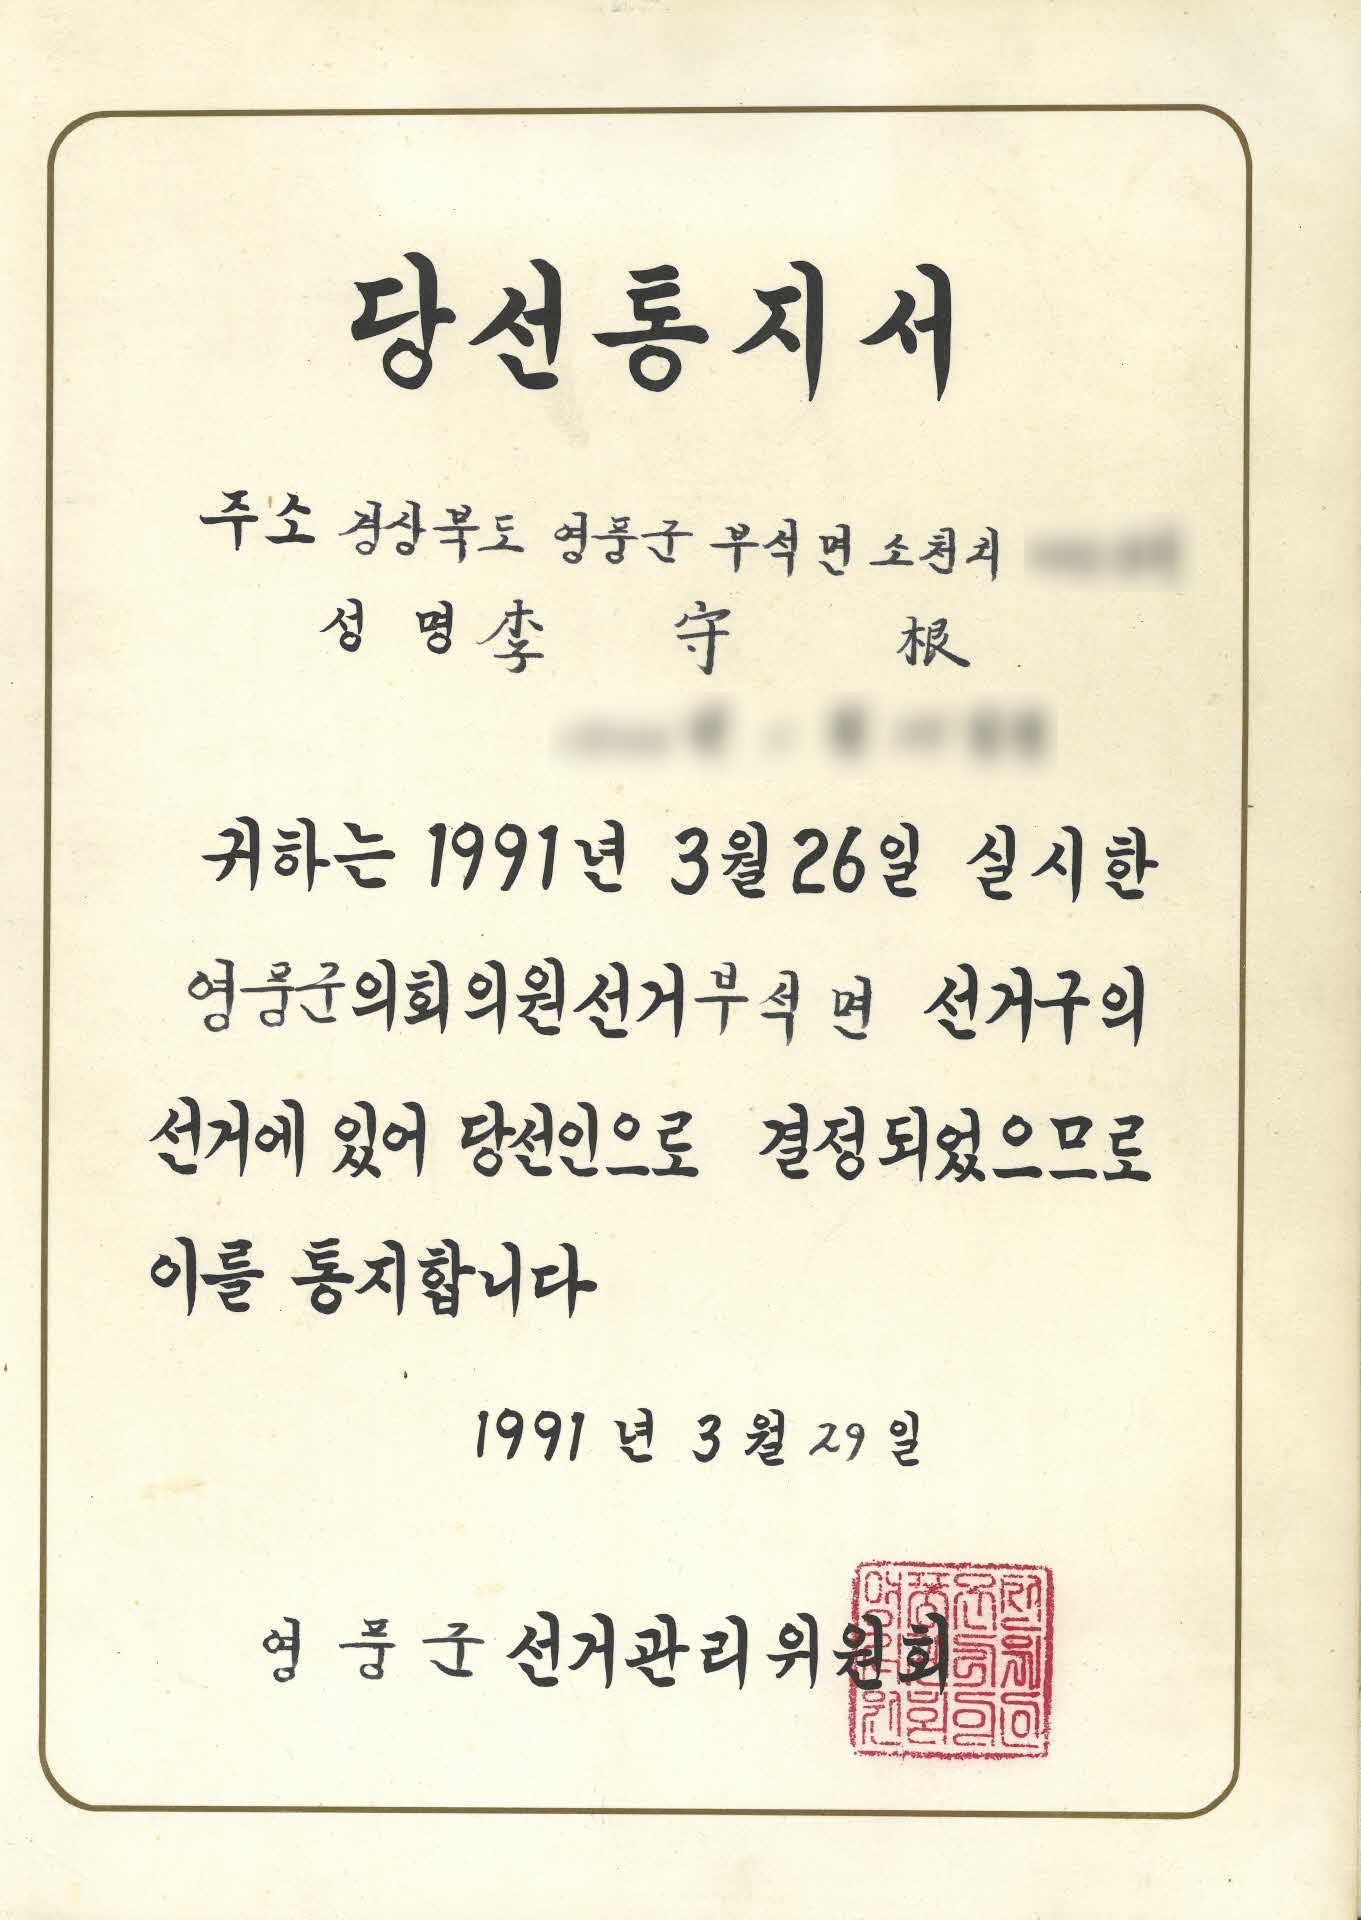 당선통지서
주소 경상북도 영풍군 부석면 소천리
성 명 李 守 根
귀하는 1991년 3월 26일 실시한
영풍군의회의원선거부석면 선거구의
선거에 있어 당선인으로 결정되었으므로
이를 통지합니다
1991년 3월 29일
영풍군 선거관리위원회